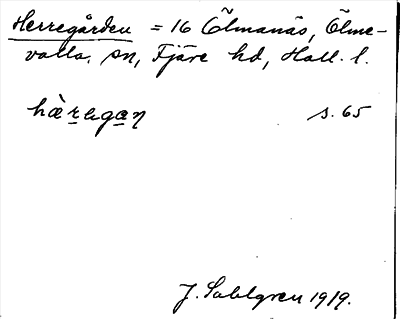 Herregården = 16 Ölmanäs, Ölme-
valla. sn, Fjäre hd, Hall. l.
hæ̀ragæn s. 65
J. Sahlgren 1919.